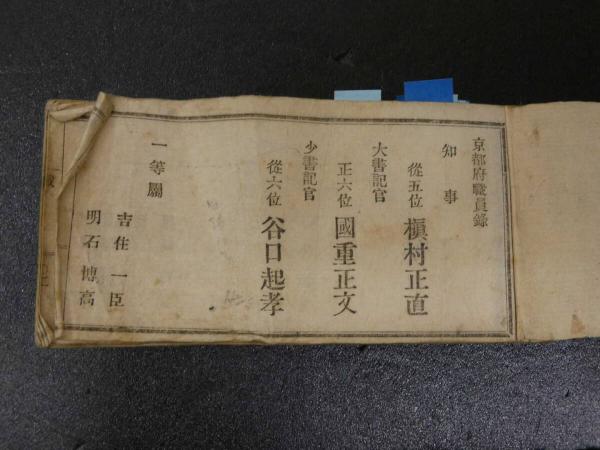 京都府職員錄
知事
從五位 槇村正直
大書記官
正六位 國重正文
少書記官
從六位 谷口起孝
一等屬
吉住一臣
明石博高